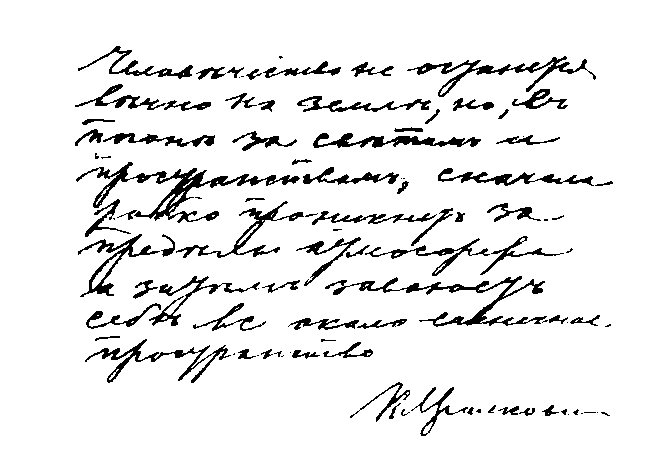 Человѣчество не останется
вѣчно на землѣ, но, въ
погонѣ за свѣтомъ и
пространствомъ, сначала
робко проникнетъ за
предѣлы атмосферы
а затѣмъ завоюетъ
себѣ все около солнечное
пространство
К Циолковскій